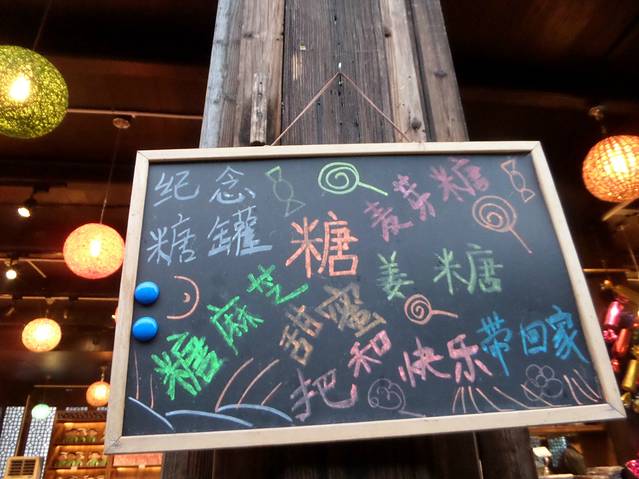 纪念
糖罐
糖
麦芽糖
姜糖
糖麻芝
甜蜜
把和快乐带回家